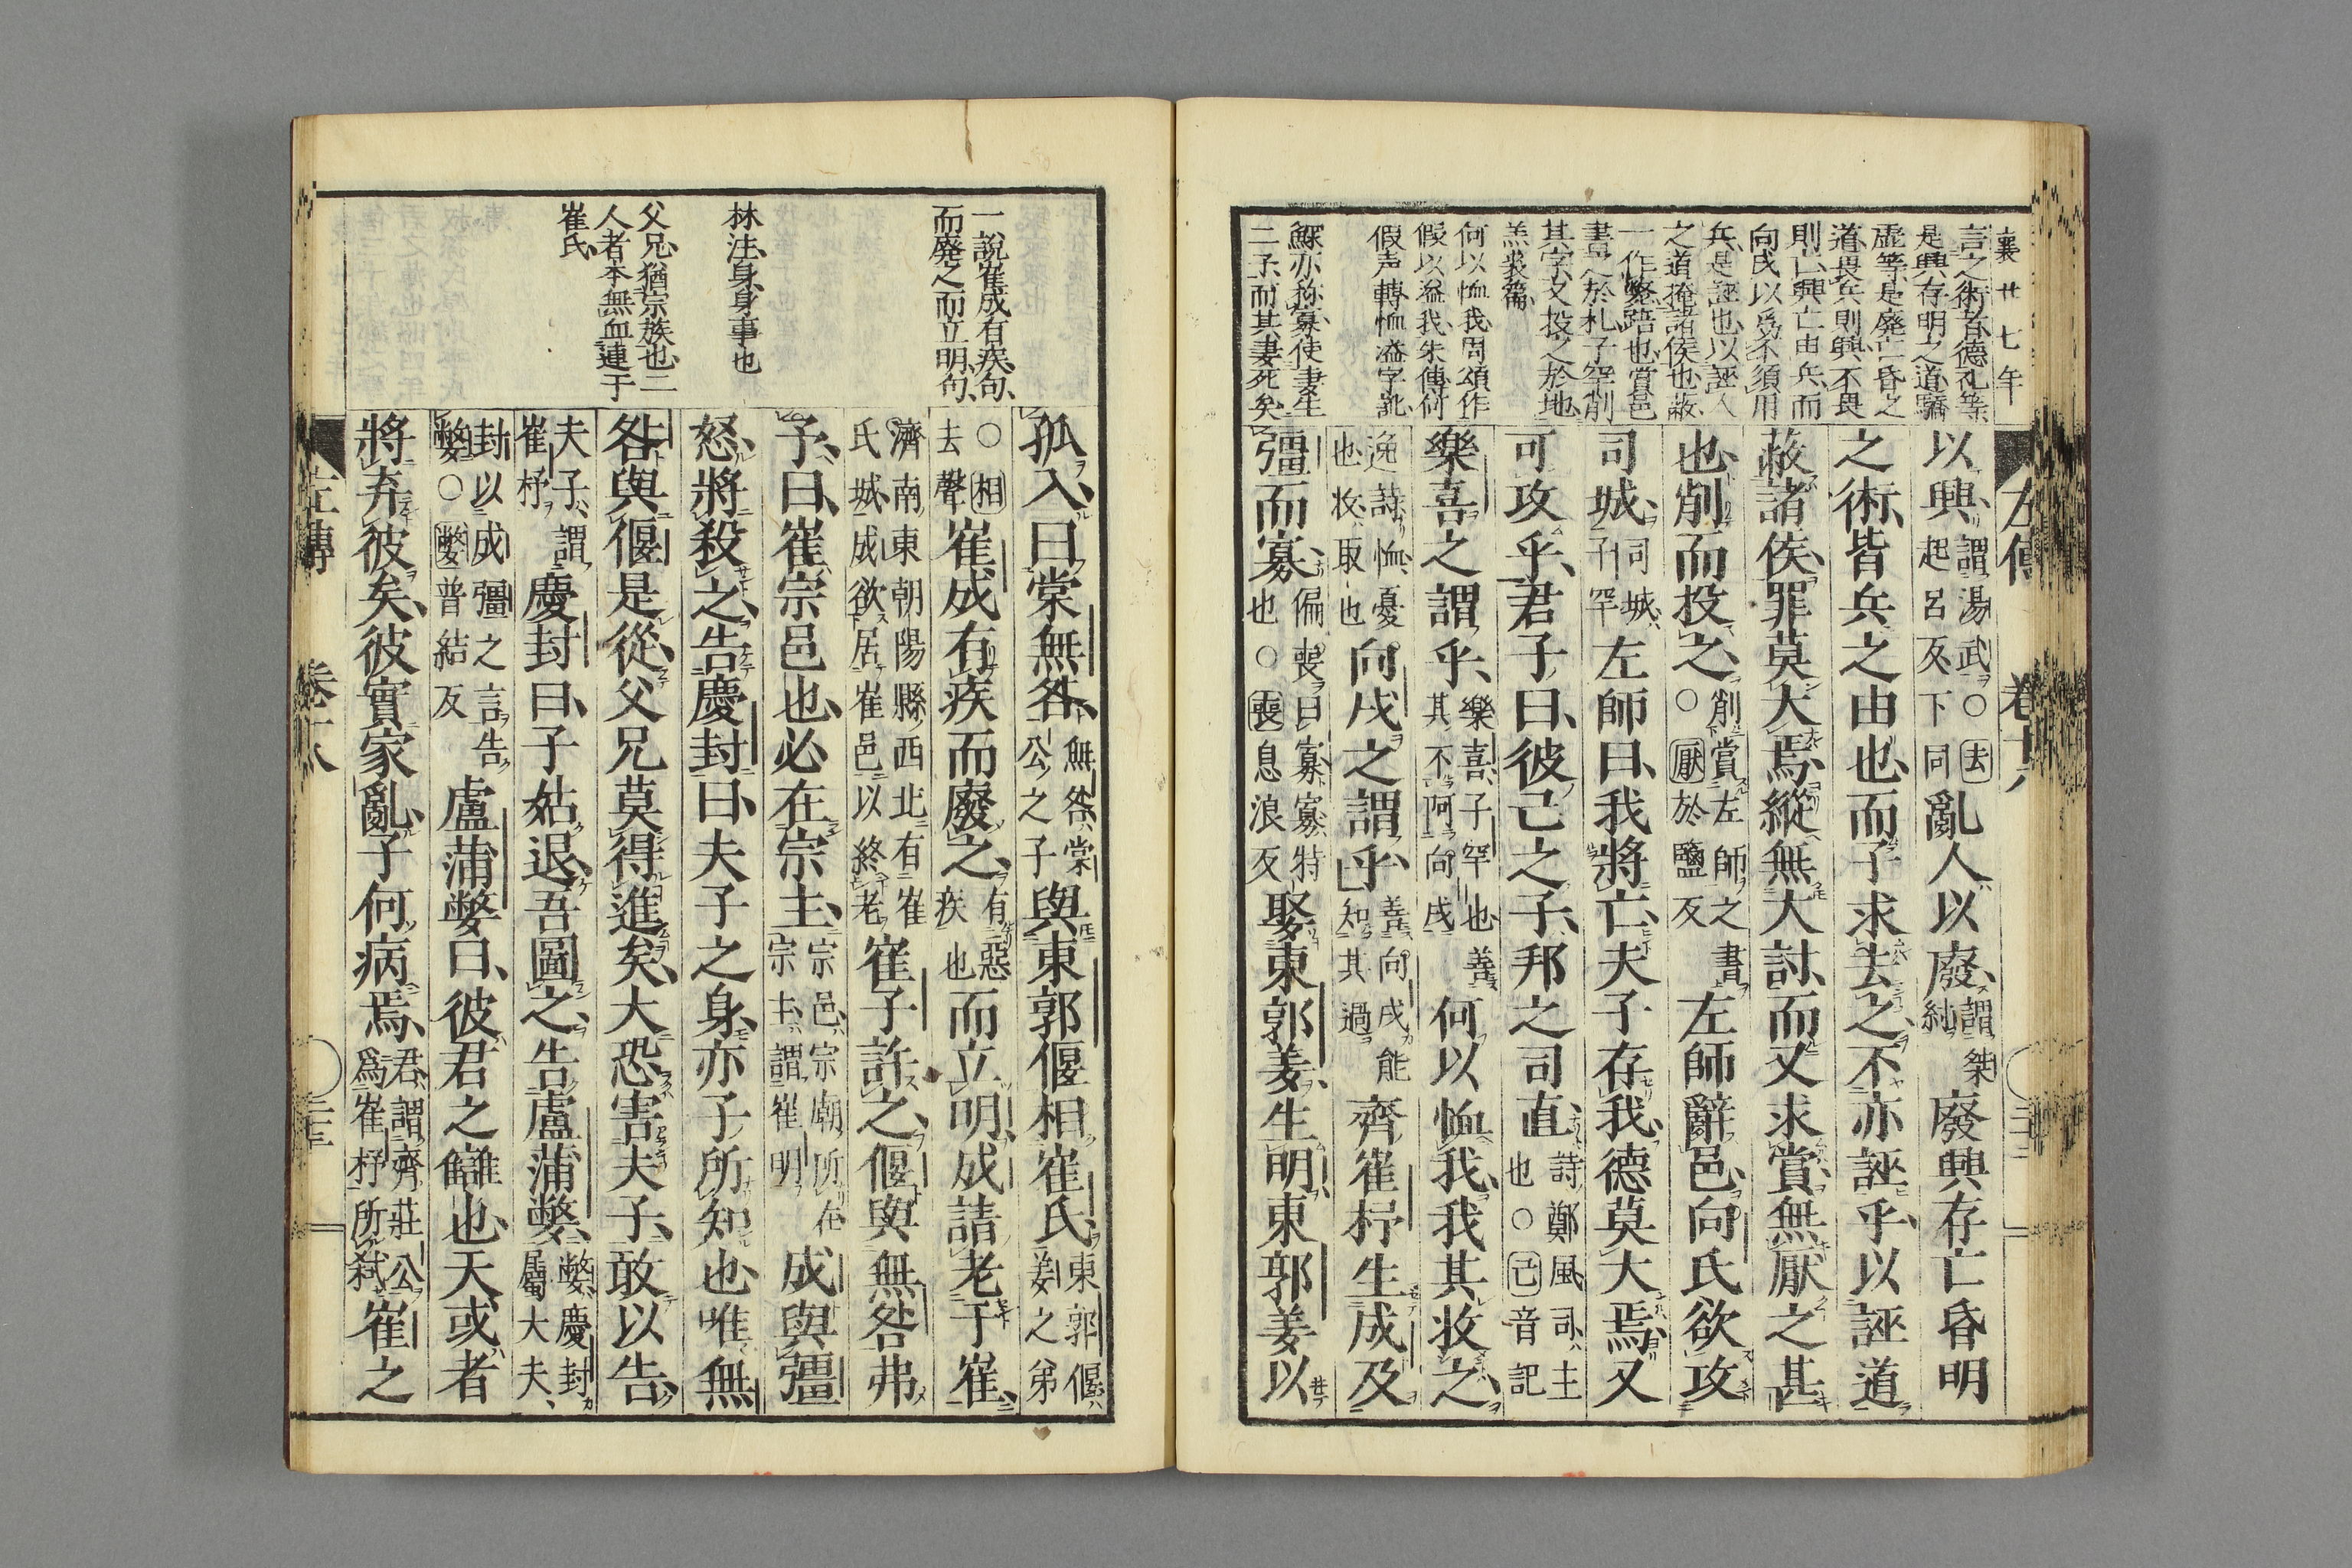 襄廿七年
言之術者德礼等
是興存明之道驕
虚等是廃亡昏之
道畏兵則興不畏
則亡興亡由兵而
向戌以爲不須用
兵是誣也以誣人
之道掩諸侯也蔽
一作斃踣也賞邑
書之於札子罕削
其字又投之於地
羔裘篇
何以恤我周頌作
假以溢我朱傳何
假声轉恤溢字訛
鰥亦称寡使妻生
二子而其妻死矣
左傳 卷十八
以興謂湯武○去起呂反下同亂人以廢謂桀紂廢興存亡昏明
之術皆兵之由也而子求去之不亦誣乎以誣道
蔽諸侯罪莫大焉縱無大討而又求賞無厭之甚
也削而投之削賞左師之書○厭於鹽反左師辭邑向氏欲攻
司城司城子罕左師曰我將亡夫子存我德莫大焉又
可攻乎君子曰彼己之子邦之司直詩鄭風司主也○己音記
樂喜之謂乎樂喜子罕也善其不阿向戌何以恤我我其收之
逸詩恤憂也收取也向戌之謂乎善向戌能知其過齊崔杼生成及
彊而寡偏喪曰寡寡特也○喪息浪反娶東郭姜生明東郭姜以
一說崔成有疾句
而廢之而立明句
林注身身事也
父兄猶宗族也二
人者本無血連于
崔氏
孤入曰棠無咎無咎棠公之子與東郭偃相崔氏東郭偃姜之弟
○相去聲崔成有疾而廢之有惡疾也而立明成請老于崔
濟南東朝陽縣西北有崔氏城成欲居崔邑以終老崔子許之偃與無咎弗
予曰崔宗邑也必在宗主宗邑宗廟所在宗主謂崔明成與彊
怒將殺之告慶封曰夫子之身亦子所知也唯無
咎與偃是從父兄莫得進矣大恐害夫子敢以告
夫子謂崔杼慶封曰子姑退吾圖之告盧蒲嫳嫳慶封屬大夫
封以成彊之言告嫳○嫳普結反盧蒲嫳曰彼君之讎也天或者
將弃彼矣彼實家亂子何病焉君謂齊莊公爲崔杼所弑崔之
左傳 卷十八